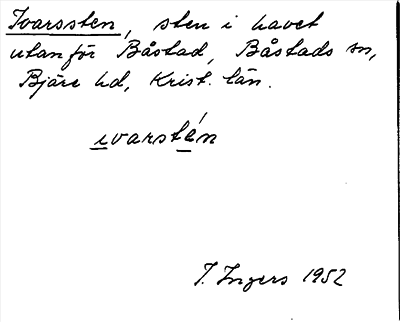 Ivarssten, sten i havet
utanför Båstad, Båstads sn,
Bjäre hd, Krist. län.
ivarstén
I. Ingers 1952